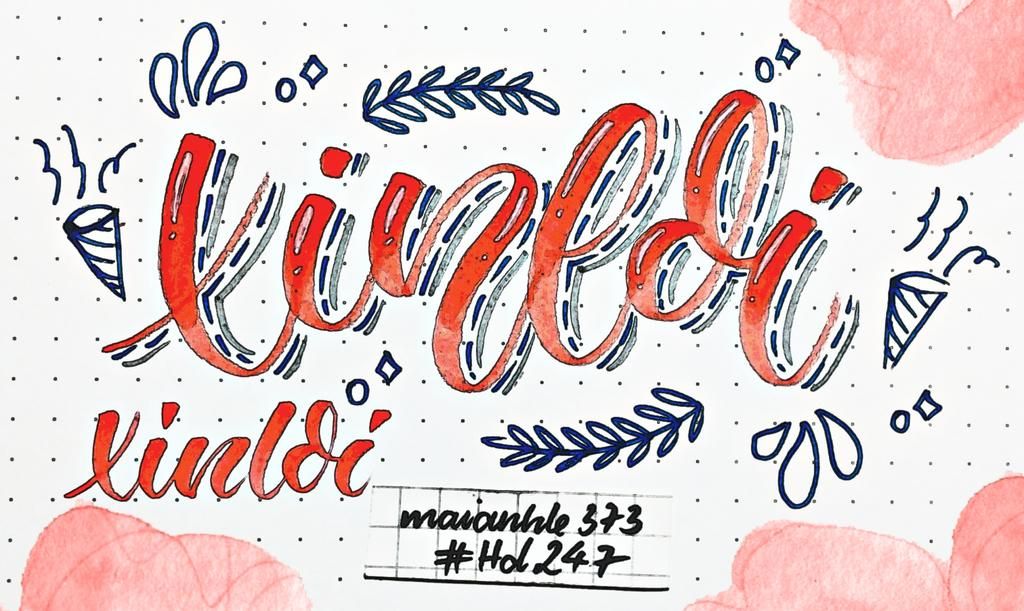 xinloi
xinloi
maianhle 373
#Hdl247